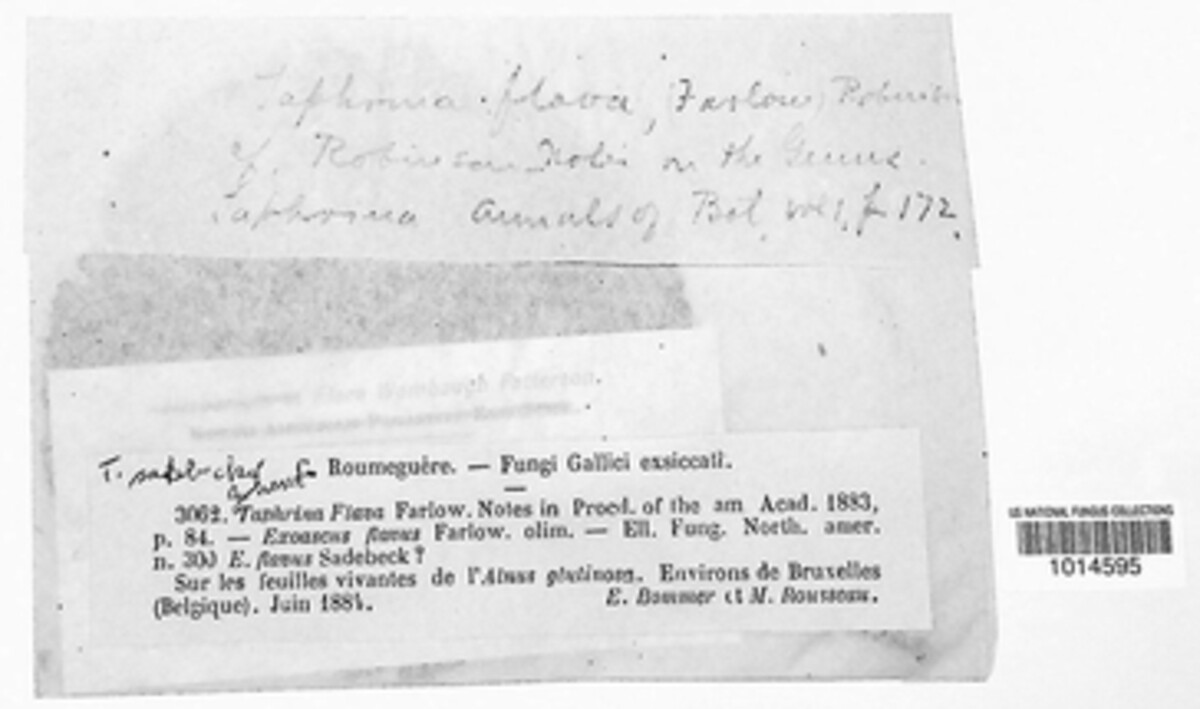 Taphrina flava, (Farlow) Robinson
cf. Robinson Notes on the Genus
Taphrina Annals of Bot. vol 1, p 172.
Flora Wambaugh Patterson.
T. sadebeckii
C. Roumeguère. — Fungi Gallici exsiccati.
3062. Taphrina Flava Farlow. Notes in Proed. of the am Acad. 1883,
p. 84. — Exoascus flavus Farlow. olim. — Ell. Fung. North. amer.
n. 300 E. flavus Sadebeck?
Sur les feuilles vivantes de l'Alnus glutinosa. Environs de Bruxelles
(Belgique). Juin 1884.
E. Bommer et M. Rousseau.
US NATIONAL FUNGUS COLLECTIONS
1014595